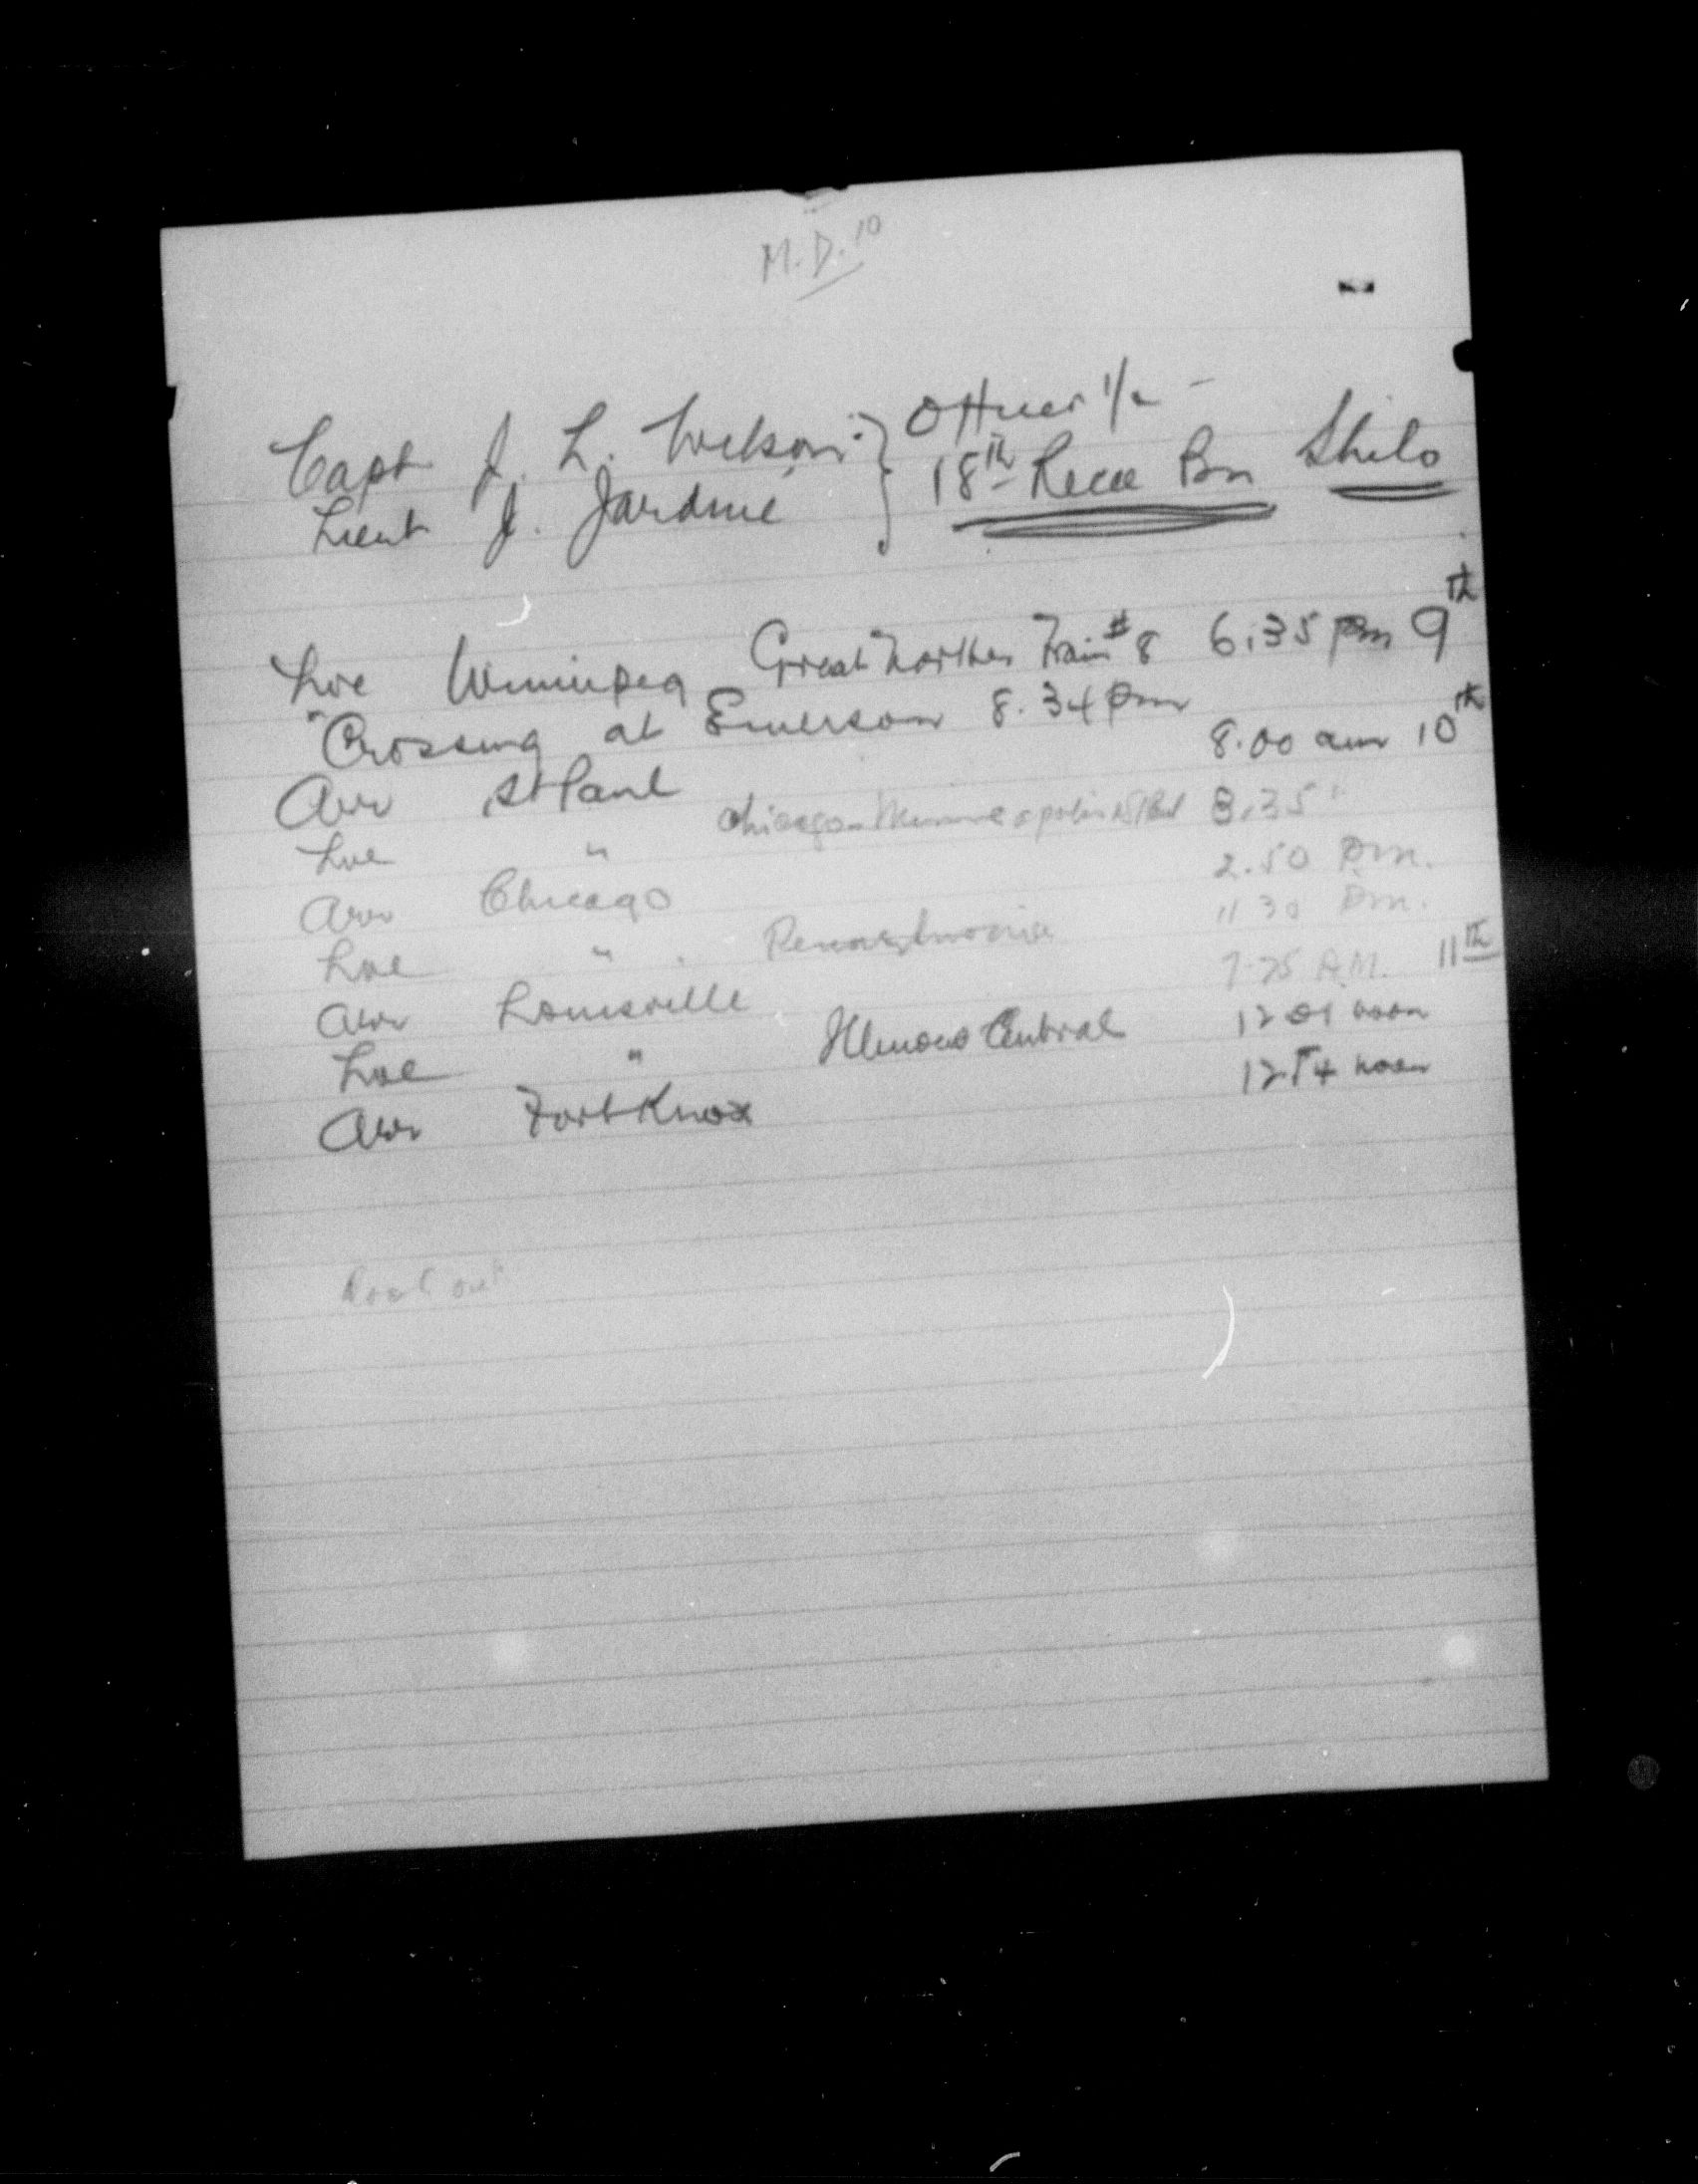 M.D. 10
Capt J. L. Wilson } Officer i/c -
Lieut J. Jardine } 18th Recce Bn Shilo
Lve Winnipeg Great Northern Train #8 6.35 pm 9th
"Crossing at Emerson 8.34 pm
Arr St Paul 8.00 am 10th
Lve " Chicago-Minneapolis St Paul 8.35 "
Arr Chicago 2.50 pm.
Lve " . Pennsylvania 11 30 pm.
Arr Louisville 7.25 A.M. 11th
Lve " Illinois Central 12 01 noon
Arr Fort Knox 12.54 noon
out